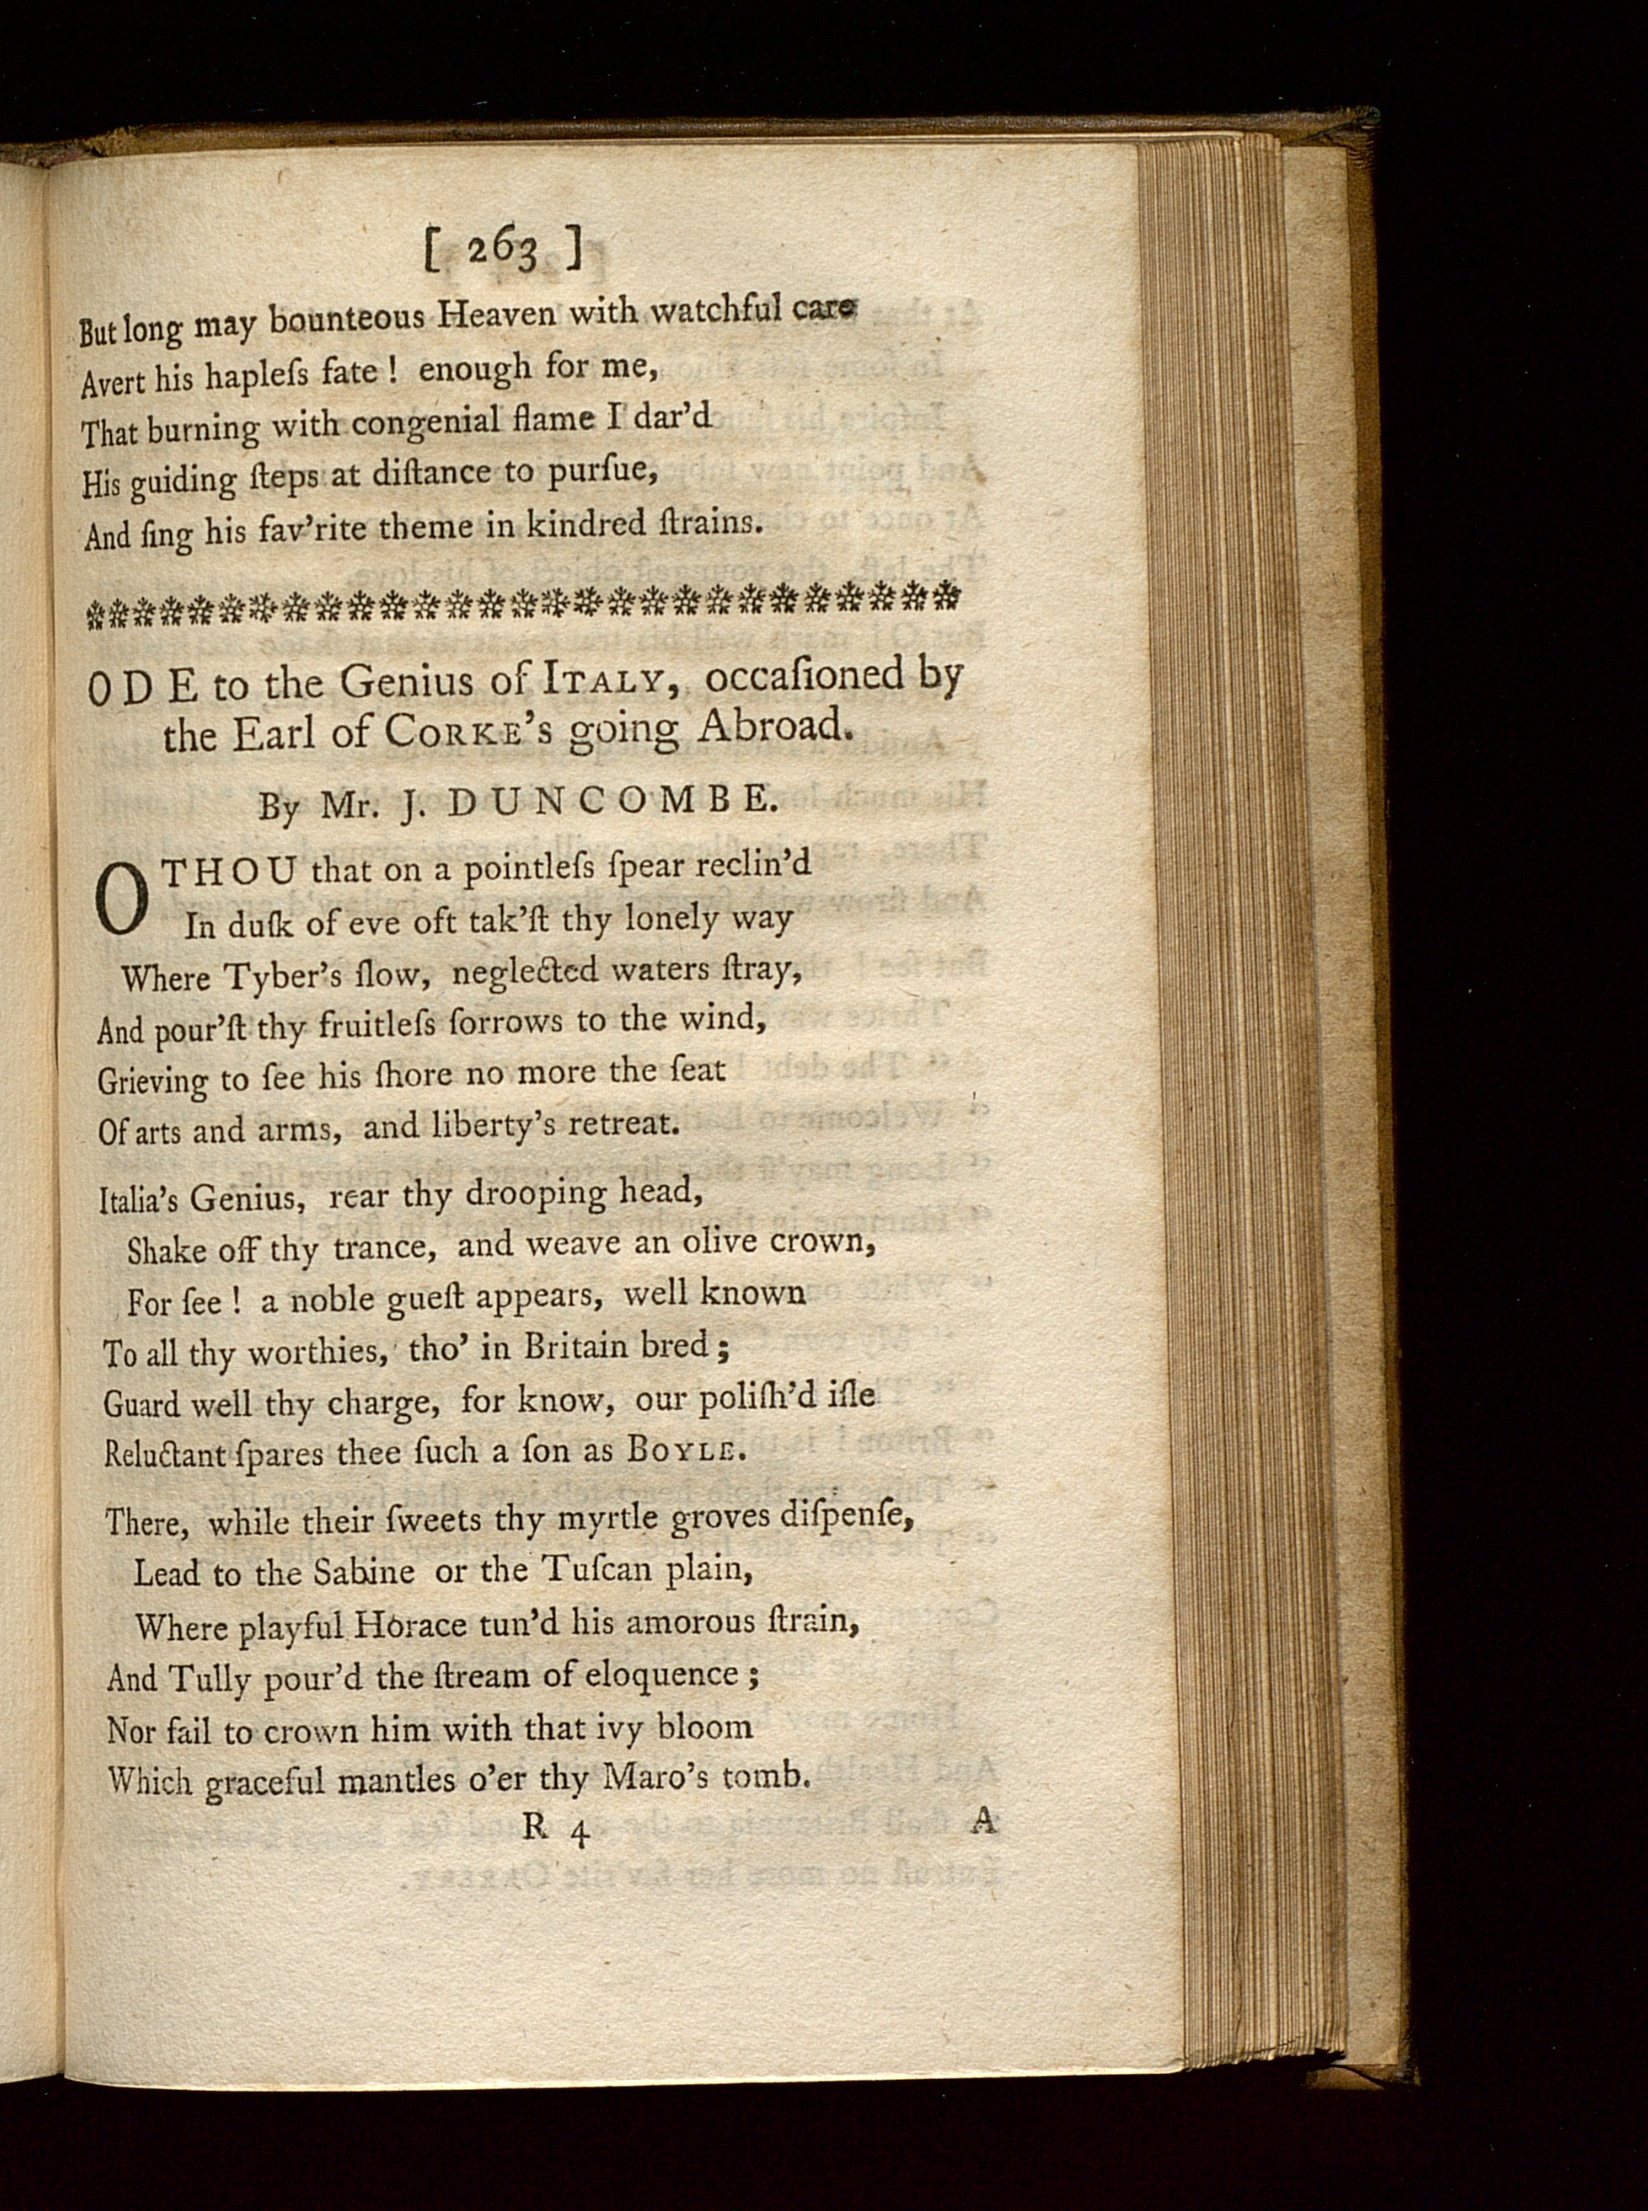 [ 263 ]
But long may bounteous Heaven with watchful care
Avert his hapleſs fate ! enough for me,
That burning with congenial flame I dar'd
His guiding ſteps at diſtance to purſue,
And ſing his fav'rite theme in kindred ſtrains.
ODE to the Genius of ITALY, occaſioned by
the Earl of CORKE's going Abroad.
By Mr. J. DUNCOMBE.
O THOU that on a pointleſs ſpear reclin'd
In duſk of eve oft tak'ſt thy lonely way
Where Tyber's ſlow, neglected waters ſtray,
And pour'ſt thy fruitleſs ſorrows to the wind,
Grieving to ſee his ſhore no more the ſeat
Of arts and arms, and liberty's retreat.
Italia's Genius, rear thy drooping head,
Shake off thy trance, and weave an olive crown,
For ſee ! a noble gueſt appears, well known
To all thy worthies, tho' in Britain bred ;
Guard well thy charge, for know, our poliſh'd iſle
Reluctant ſpares thee ſuch a ſon as BOYLE.
There, while their ſweets thy myrtle groves diſpenſe,
Lead to the Sabine or the Tuſcan plain,
Where playful Horace tun'd his amorous ſtrain,
And Tully pour'd the ſtream of eloquence ;
Nor fail to crown him with that ivy bloom
Which graceful mantles o'er thy Maro's tomb.
R 4 A